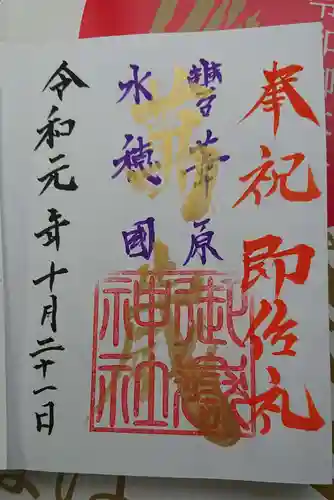 奉祝 即位礼
豊葦原
水穂國
令和元年十月二十一日
御嶽神社